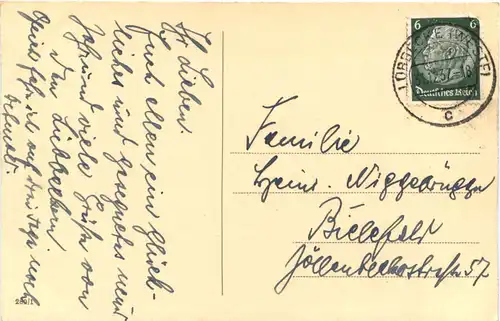 Ihr Lieben.
Euch allen ein glück-
liches und gesegnetes neue
Jahr und viele Grüße von
den Lübbeckern
auf
6 6
Deutsches Reich
LÜBBECKE (WESTF)
c
Familie
Heinr. Niggebrügge
Bielefeld
Jöllenbeckerstraße 57
289/1